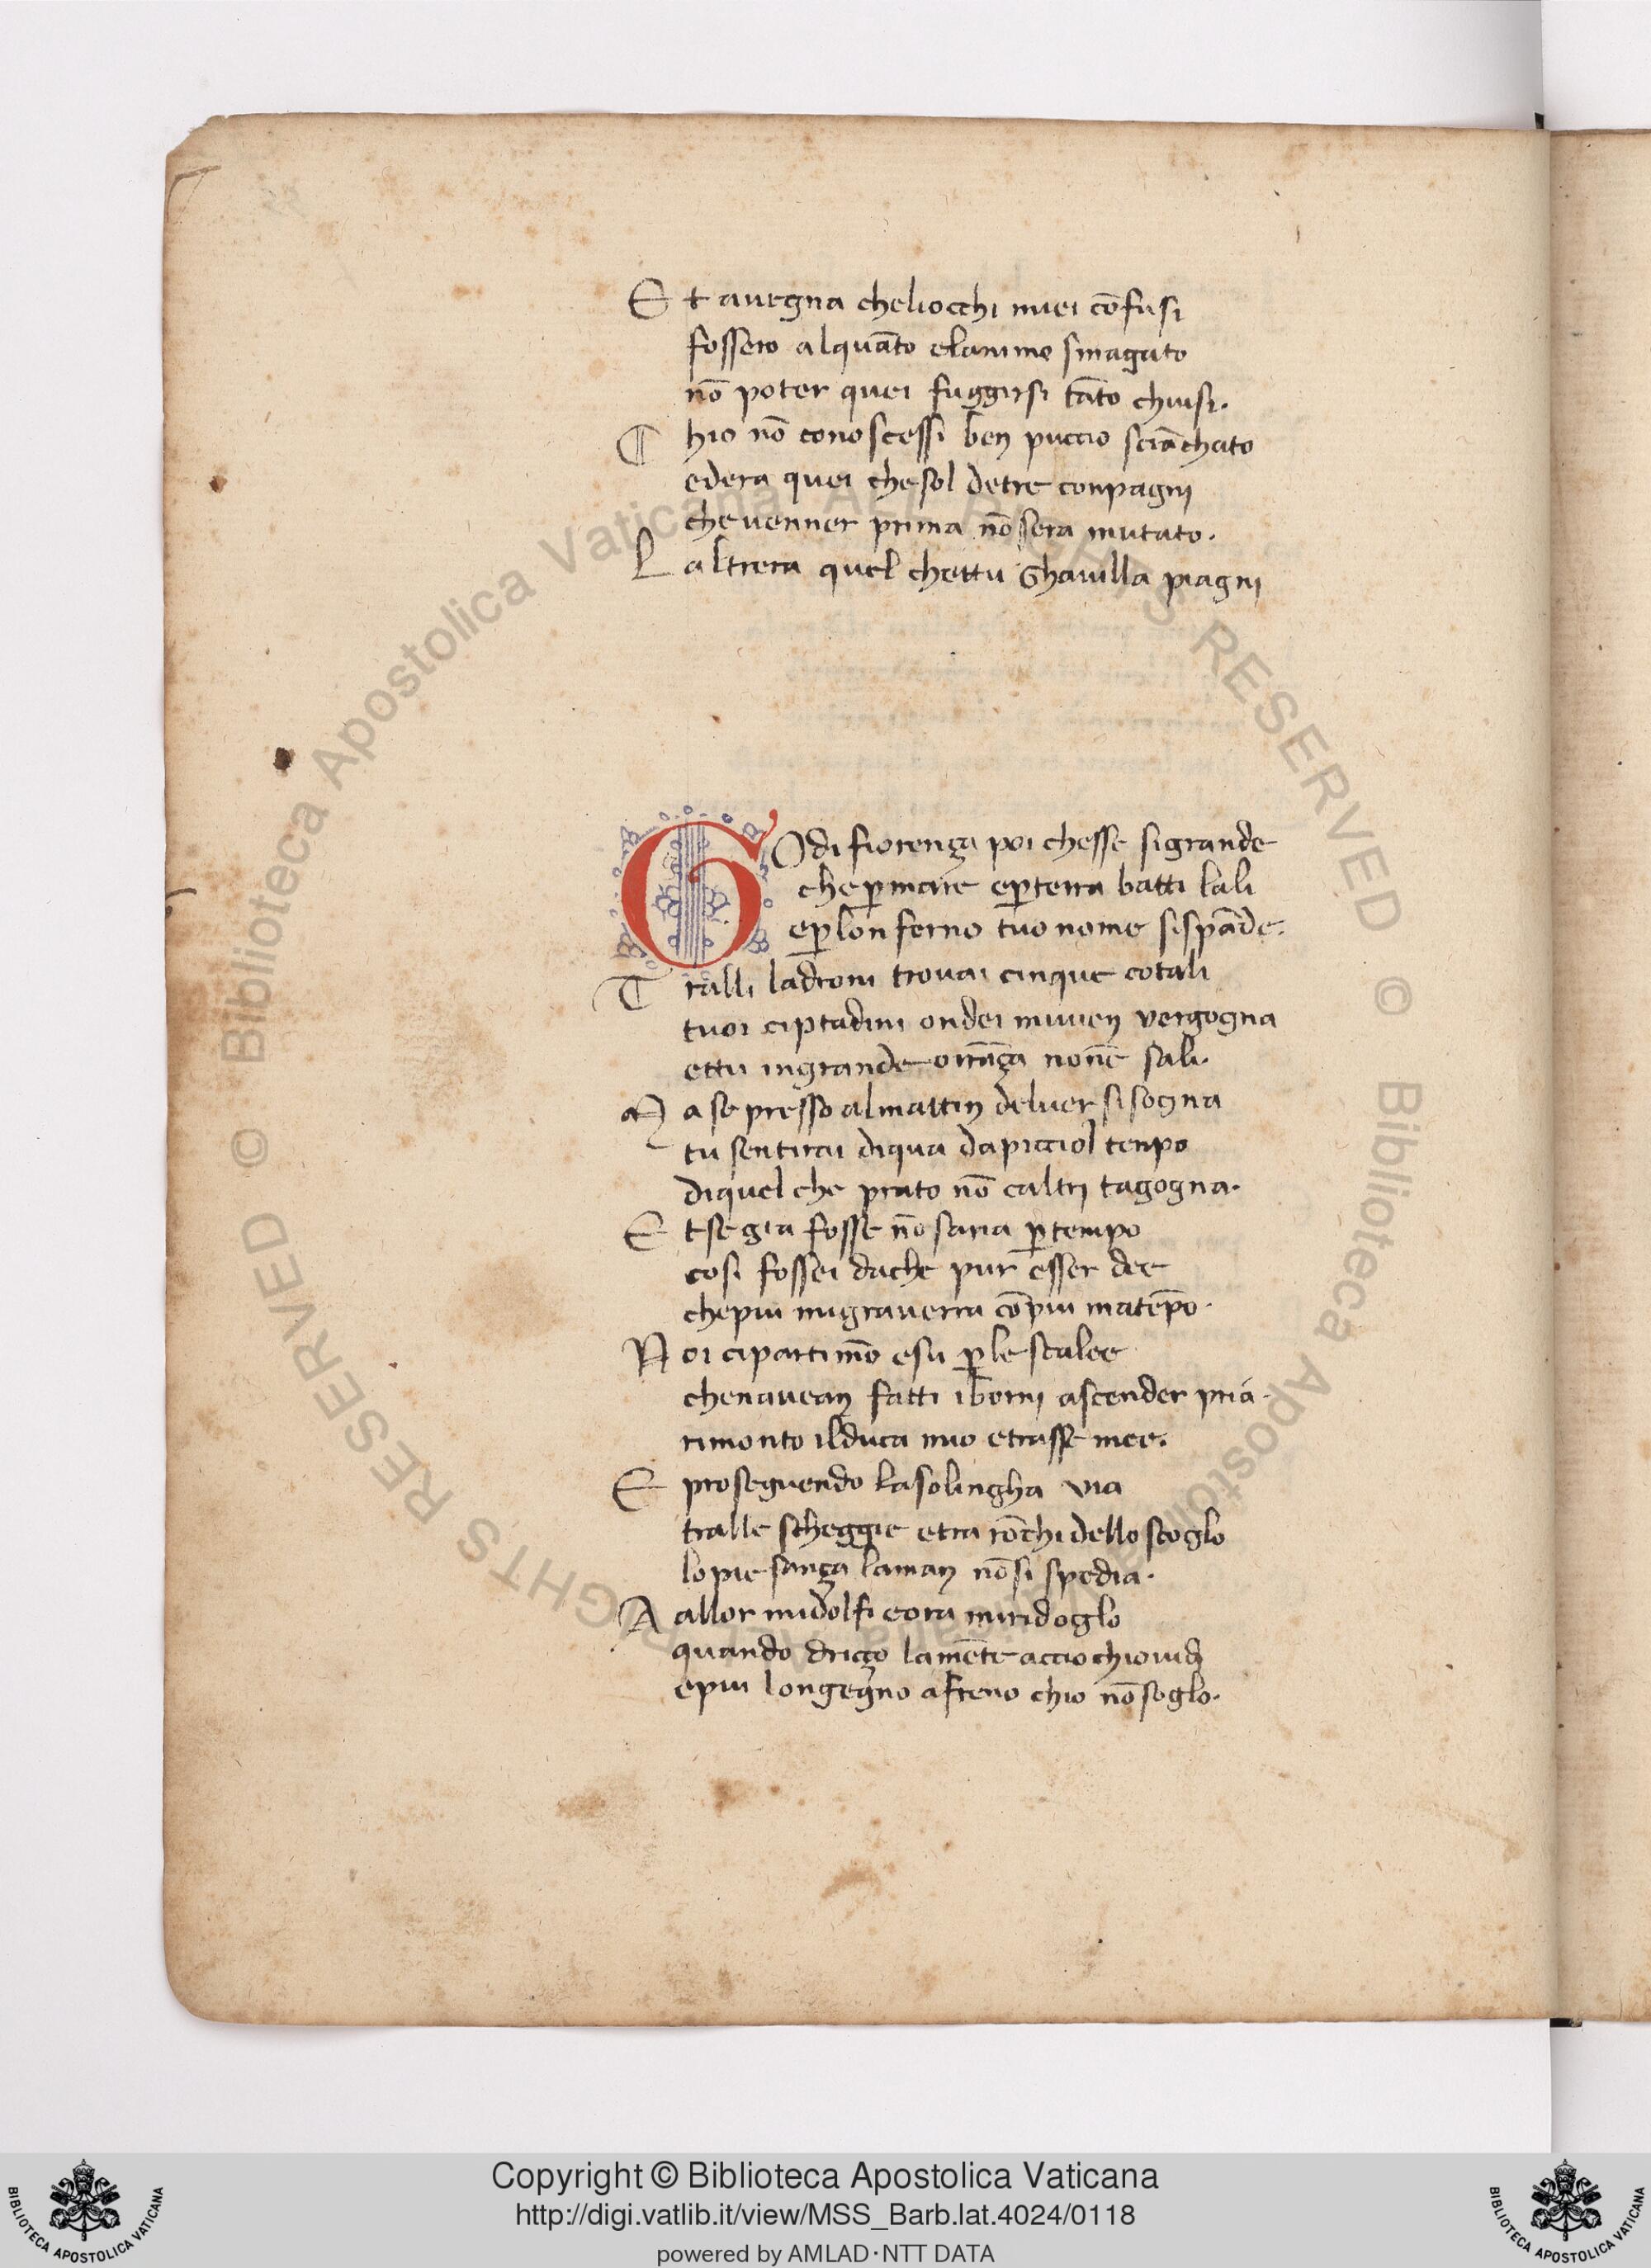 Et auegna cheliocchi miei cōfusi
fossero alquāto elanimo smagato
nō poter quei fuggirsi tāto chiusi.
Chio nō conoscessi ben puccio sciāchato
edera quei chesol detre conpagni
cheuenner prima nōsera mutato.
Laltrera quel chettu Ghauilla piagni
GOdi fiorença poi chesse sigrande
chep̄mare ep̄terra batti lali
ep̄lonferno tuo nome sispāde.
Tralli ladroni trouai cinque cotali
tuoi ciptadini ondei miuien vergogna
ettu ingrande orrāça nonne sali.
Ma se presso almattin deluer sisogna
tu sentirai diqua dapicciol tenpo
diquel che prato nō caltri tagogna.
Et se gia fosse nō saria p̄ tempo
cosi fossei dache pur esser dee
chepiu migrauerra cōpiu matēpo.
Noi cipartimō esu p̄ le scalee
chenauean fatti iborni ascender pria.
rimonto ilduca mio etrasse mee.
E proseguendo lasolingha via
tralle scheggie etra rōchi dello scoglo
lopie sança laman nōsi spedia.
Aallor midolsi eora miridoglo
quando driçço lamēte accio chiouidi
epiu longegno afreno chio nō soglo.
© Biblioteca Apostolica Vaticana ALL RIGHTS RESERVED © Biblioteca Apostolica Vaticana ALL RIGHTS RESERVED
Copyright © Biblioteca Apostolica Vaticana
http://digi.vatlib.it/view/MSS_Barb.lat.4024/0118
powered by AMLAD·NTT DATA
BIBLIOTECA APOSTOLICA VATICANA
BIBLIOTECA APOSTOLICA VATICANA